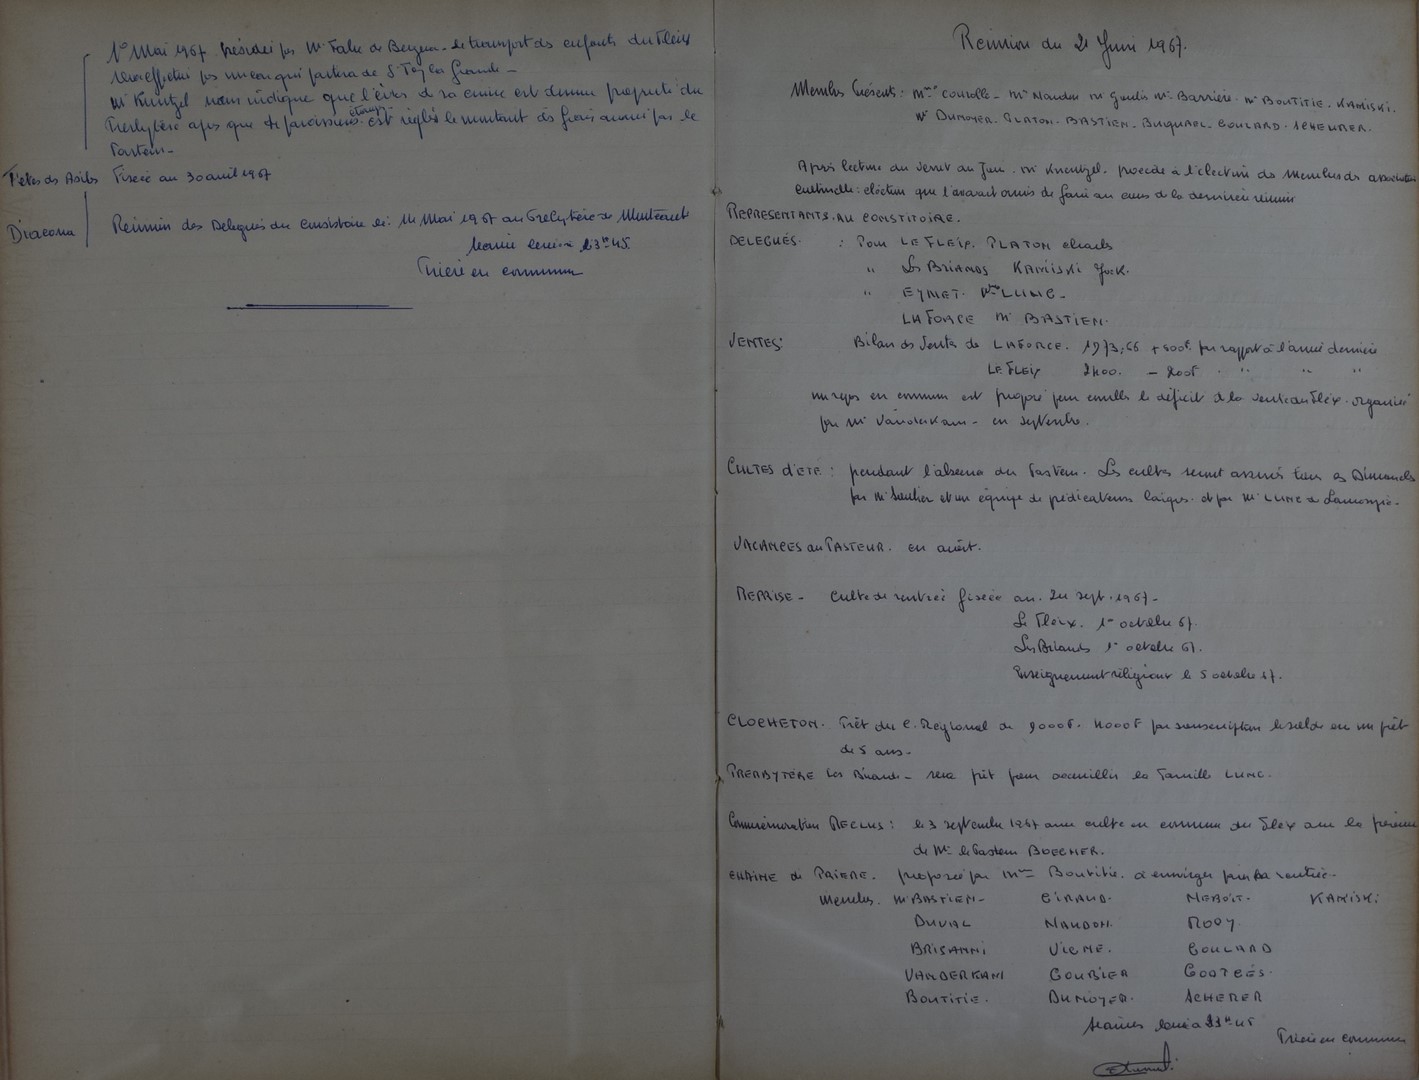 1er Mai 1967 Présidé par Mr Fabre de Bergerac - le transport des enfants du Fleix
sera effectué par un car qui partira de Ste Foy la Grande -
Mr Kuntzel nous indique que l'évier de sa cuisine est devenu propriété du
Presbytère après que des paroissiens étant réglé le montant des frais avancé par le
Pasteur -
Fêtes des Asiles Fixée au 30 avril 1967
Diacona Réunion des Délégués du Consistoire le 11 Mai 1967 au Presbytère de Montcaret
Séance levée à 23h45
Prière en commun
Réunion du 21 Juin 1967.
Membres Présents : Mme Courolle - Mr Naudon Mr Mr Barrière - Mr BOUTITIE - KAMISKI.
Mr DUMOYER - PLATON - BASTIEN - - GOULARD - SCHEURER.
Après lecture du Mr Kuentzel procède à l'élection des Membres des association
cultuelle : élection que l'avait omis de faire au cours de la dernière réunion
REPRESENTANTS AU CONSTITOIRE.
DELEGUÉS : Pour LE FLEIX. PLATON charles
" Les BRIANDS KAMISKI
" EYMET. LUNG -
LA FORCE Mr BASTIEN.
VENTES : Bilan des Ventes de LAFORCE. 1973,66 + 500F par rapport à l'année dernière
LE FLEIX 2400. - 200F " " "
un repas en commun est proposé pour combler le déficit de la vente du Fleix - organisé
par Mr Vanderkam - en septembre.
CULTES D'ÉTÉ : pendant l'absence du Pasteur. Les cultes seront assurés tous les Dimanches
par Mr et un équipe de prédicateurs laïques - et par Mr LUNG de Lamonzie -
VACANCES du PASTEUR. en août.
REPRISE - Culte de rentrée fixée au. 24 sept. 1967 -
Le Fleix. 1er octobre 67.
Les Briands 1er octobre 67.
Enseignement religieux le 5 octobre 67.
CLOCHETON. Prêt du C. Régional de 9000F. 4000F par souscription le solde en un prêt
de 5 ans -
PRESBYTÈRE Les Briands - sera prêt pour accueillir la Famille LUNG.
Commémoration RECLUS : le 3 septembre 1967 avec culte en commun au Fleix avec la présence
de Mr le Pasteur BOEGNER.
CHAINE de PRIERE. proposée par Mme Boutitie. à envisager pour la rentrée -
Membres. Mr BASTIEN - GIRAUD. MEROIT. KAMISKI
DUVAL NAUDON. ROOY
BRISANNI VIGNE. GOULARD
VANDERKAM GOURSIER
BOUTITIE. DUMOYER. SCHERER
Séance levée à 23h45
Prière en commun